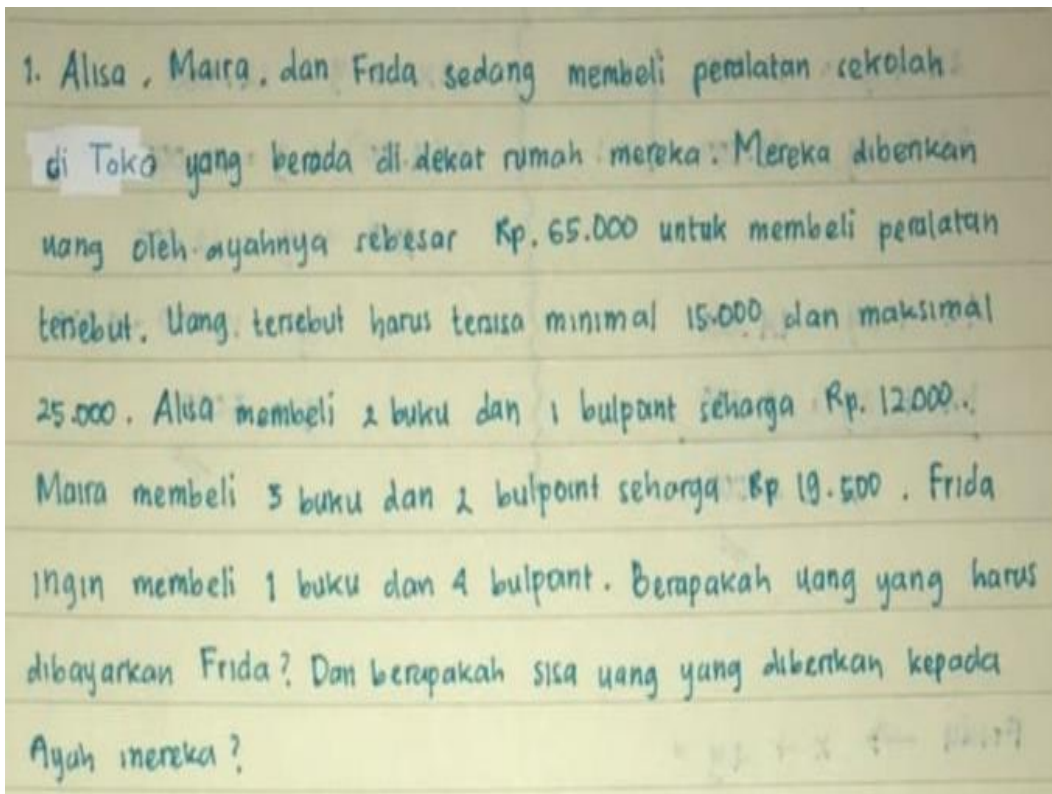 1. Alisa, Maira, dan Frida sedang membeli peralatan sekolah
di Toko yang berada di dekat rumah mereka. Mereka diberikan
uang oleh ayahnya sebesar Rp. 65.000 untuk membeli peralatan
tersebut. Uang tersebut harus tersisa minimal 15.000 dan maksimal
25.000. Alisa membeli 2 buku dan 1 bulpoint seharga Rp. 12.000.
Maira membeli 3 buku dan 2 bulpoint seharga Rp 19.500. Frida
ingin membeli 1 buku dan 4 bulpoint. Berapakah uang yang harus
dibayarkan Frida? Dan berapakah sisa uang yang diberikan kepada
Ayah mereka?